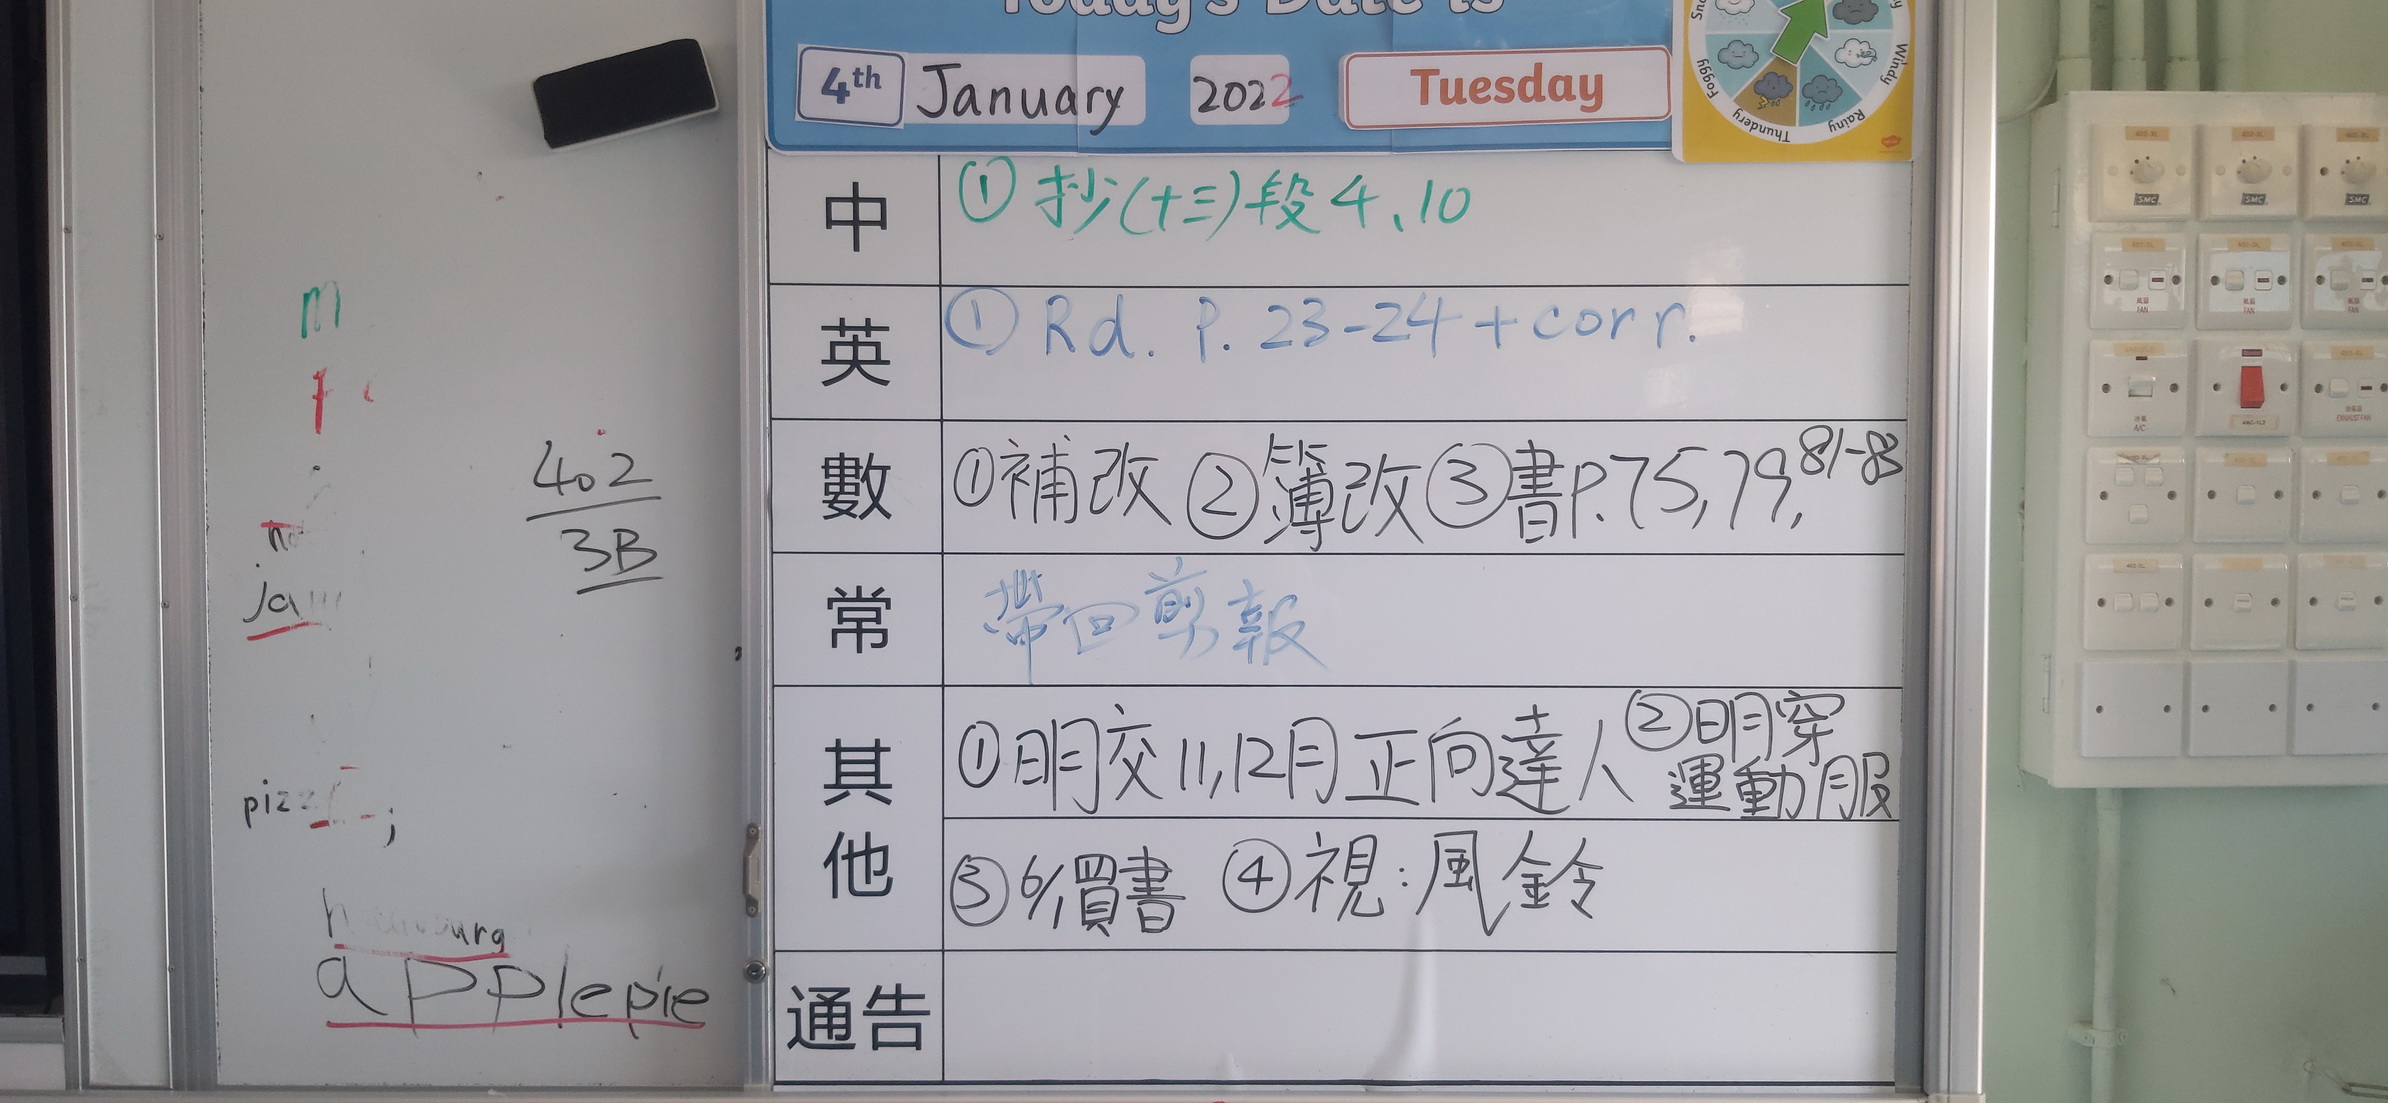 Today's Date is
4th January 2022 Tuesday
Foggy Thundery Rainy Windy
中 ① 抄(十三)段4、10
英 ① Rd. P. 23-24 + corr.
數 ①補改 ②簿改 ③書P.75,79,81-83
常 帶回剪報
其他 ①明交11,12月正向達人 ②明穿
運動服
③6/1買書 ④視:風鈴
通告
m
402
3B
ja
pizz
applepie
SMC SMC SMC
風扇 風扇 風扇
FAN FAN FAN
A/C EXHAUST FAN